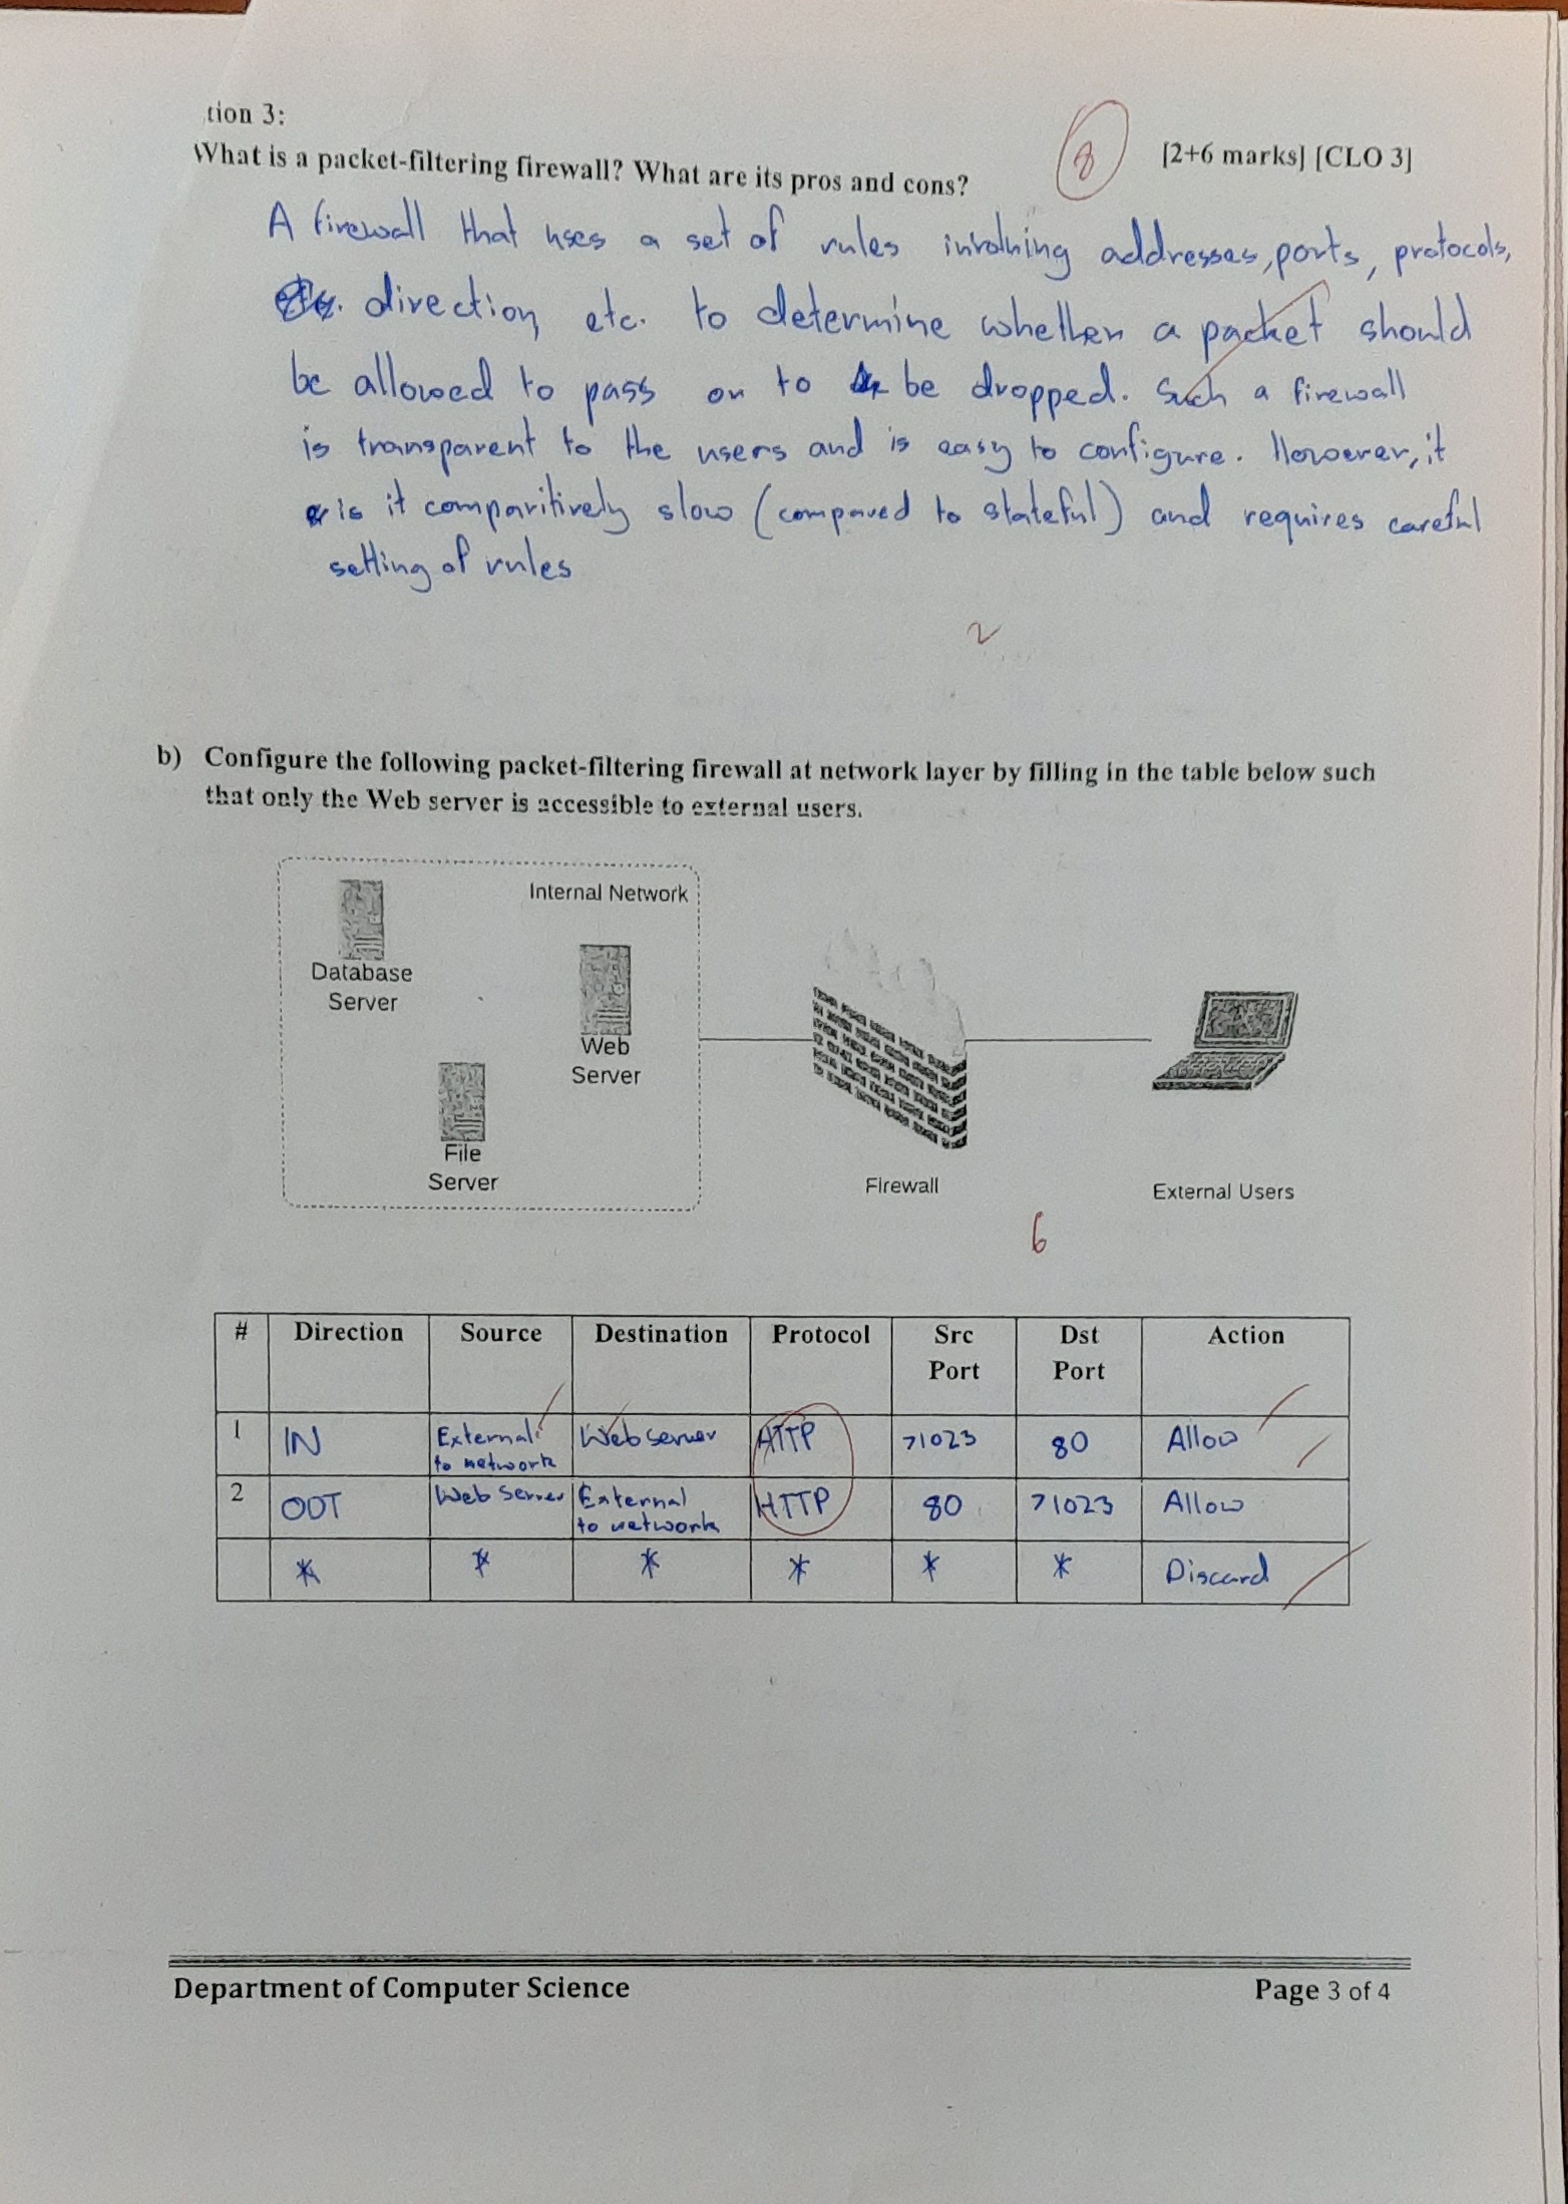 tion 3:
What is a packet-filtering firewall? What are its pros and cons?
8
[2+6 marks] [CLO 3]
A firewall that uses a set of rules involving addresses, ports, protocols,
direction, etc. to determine whether a packet should
be allowed to pass or to be dropped. Such a firewall
is transparent to the users and is easy to configure. However, it
is it comparitively slow (compared to stateful) and requires careful
setting of rules
2
b) Configure the following packet-filtering firewall at network layer by filling in the table below such
that only the Web server is accessible to external users.
Internal Network
Database
Server
Web
Server
File
Server
Firewall
External Users
6
# Direction Source Destination Protocol Src Port Dst Port Action
1 IN External to network Web server HTTP 71023 80 Allow
2 OUT Web Server External to network HTTP 80 71023 Allow
* * * * * * Discard
Department of Computer Science
Page 3 of 4